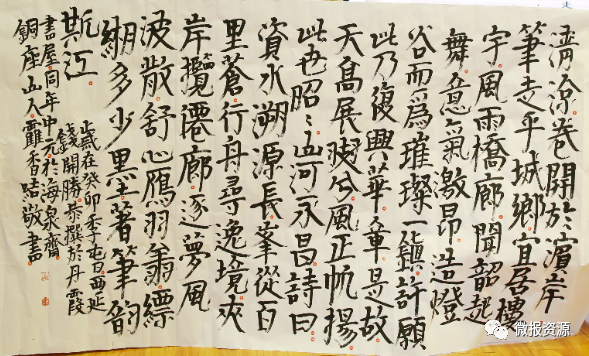 卷開於濱岸
筆走乎城鄉宜居樓
宇風雨橋廊聞韶起
舞意氣激昂造燈
谷而爲璀璨一鎮許願
此乃復興華章是之故
天高展翅兮風正帆揚
此也昭昭山河永昌詩曰
資水溯源長峯從百
里蒼行舟尋逸境夾
岸攬廊逐夢風
波散舒心鴈羽翁縹
緗多少墨著筆韵
斯江
歲在癸卯季
錢開勝恭撰於丹霞
書屋同年中元於海泉齋
銅座山人敬書
微报资源